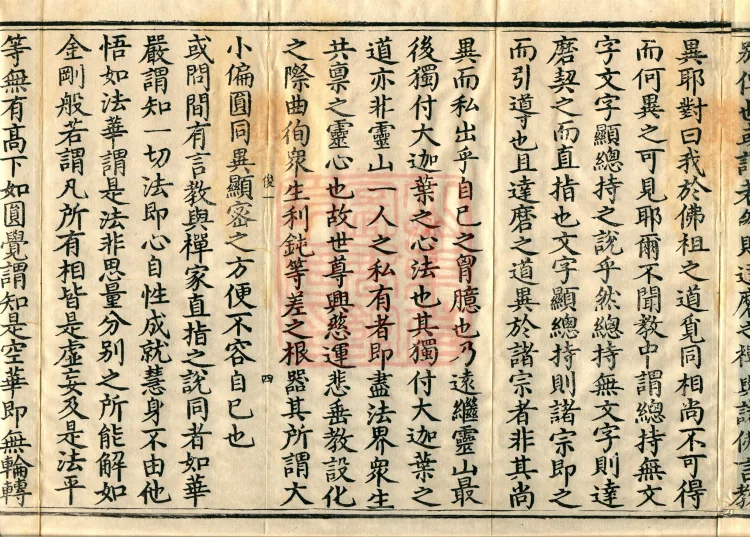 則達磨之禪與諸佛言教
異耶對曰我於佛祖之道覓同相尚不可得
而何異之可見耶爾不聞教中謂總持無文
字文字顯總持之說乎然總持無文字則達
磨契之而直指也文字顯總持則諸宗即之
而引導也且達磨之道異於諸宗者非其尚
異而私出乎自己之胷臆也乃遠繼靈山最
後獨付大迦葉之心法也其獨付大迦葉之
道亦非靈山一人之私有者即盡法界衆生
共禀之靈心也故世尊興慈運悲垂教設化
之際曲徇衆生利鈍等差之根器其所謂大
俊一 四
小偏圓同異顯密之方便不容自已也
或問間有言教與禪家直指之說同者如華
嚴謂知一切法即心自性成就慧身不由他
悟如法華謂是法非思量分別之所能解如
金剛般若謂凡所有相皆是虛妄及是法平
等無有高下如圓覺謂知是空華即無輪轉